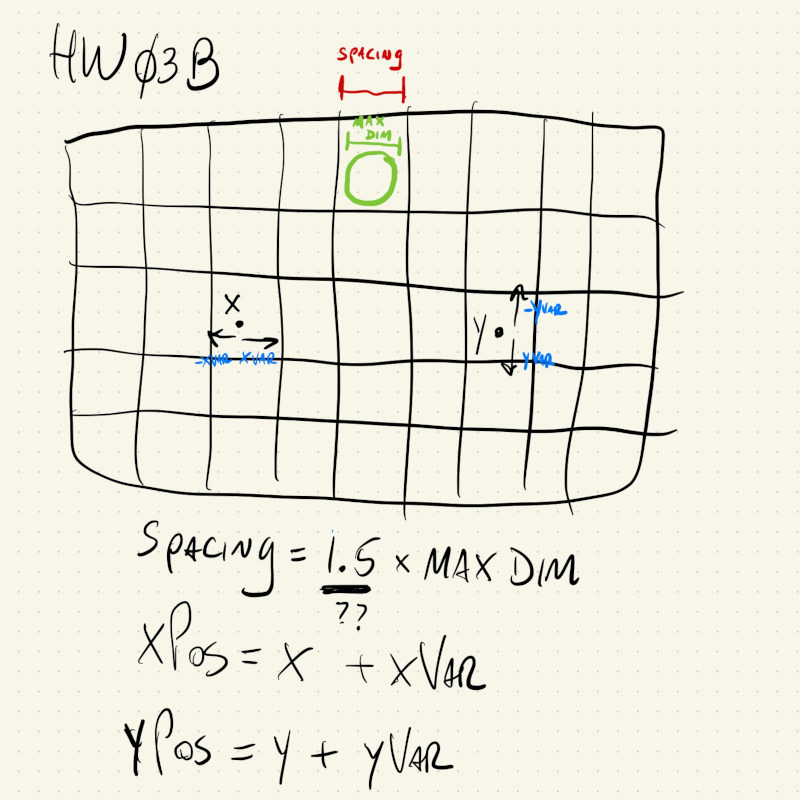 HWØ3B
SPACING
MAX
DIM
X
-XVAR XVAR
Y
-YVAR
YVAR
SPACING = 1.5 × MAX DIM
??
XPOS = X + XVAR
YPOS = Y + YVAR